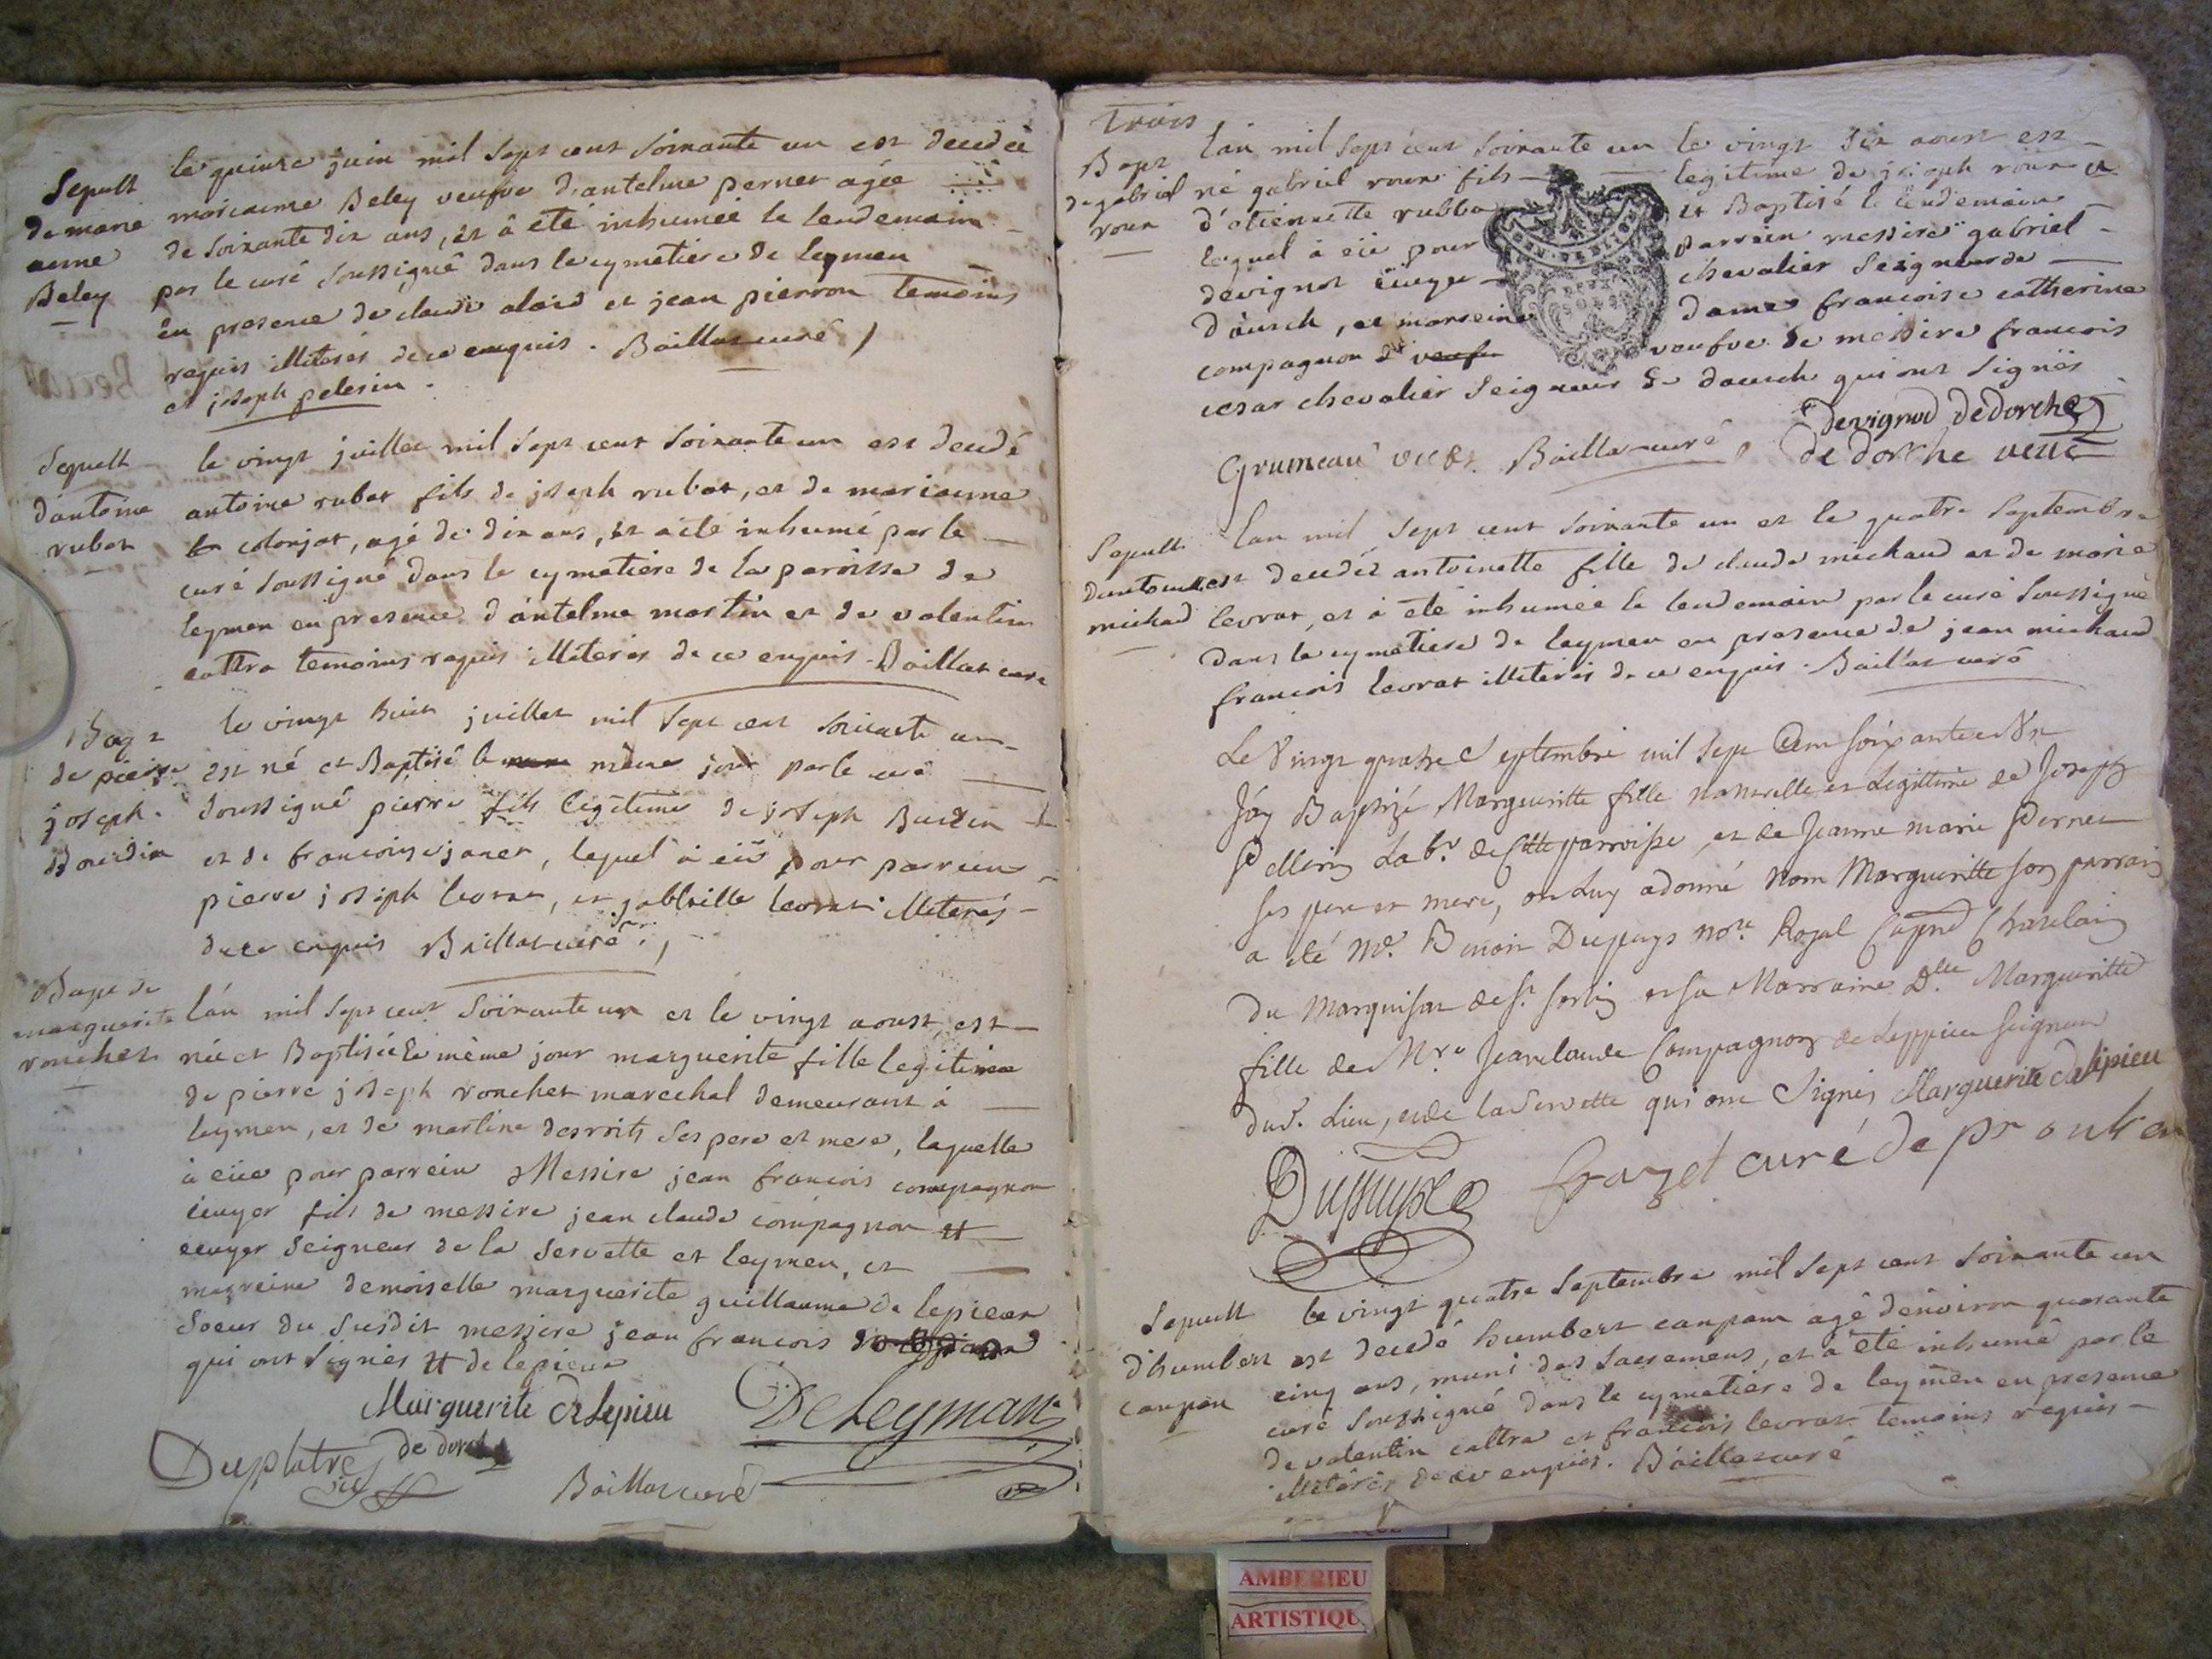 Sepult
de marie
anne
Beley
le quinze juin mil sept cent soixante un est decedée
marianne Beley veufve d'antelme pernet agée
de soixante dix ans, et à eté inhumée le lendemain
par le curé soussigné dans le cymetiere de leymen
en presence de claude alaid et jean pierron temoins
requis illiterés de ce enquis. Baillat curé
et joseph pelerin.
Sepult
d'antoine
rubat
le vingt juillet mil sept cent soixante un est decedé
antoine rubat fils de joseph rubat, et de marianne
colonjat, agé de dix ans, et a eté inhumé par le
curé soussigné dans le cymetiere de la paroisse de
leymen en presence d'antelme martin et de valentin
cattra temoins requis illiterés de ce enquis Baillat curé
Bapt
de pierre
joseph
Bourdin
le vingt huit juillet mil sept cent soixante un
est né et Baptisé le même jour par le curé
soussigné pierre fils legitime de joseph
et de francoise janet, lequel à eü pour parrein
pierre joseph levrat, et levrat illiterés
de ce enquis Baillat curé
Bapt de
marguerite
ronchet
l'an mil sept cent soixante un et le vingt aoust, est
née et Baptisée le même jour marguerite fille legitime
de pierre joseph ronchet marechal demeurant à
leymen, et de martine desroits ses pere et mere, laquelle
à eüe pour parrein Messire jean francois compagnon
ecuyer fils de messire jean claude compagnon
ecuyer seigneur de la servette et leymen, et
marreine demoiselle marguerite guillaume de lepieux
soeur du susdit messire jean francois
qui ont signés de lepieux
Marguerite de Lepieu DeLeyman
Duplatre de dorche
Baillat curé
trois
Bapt
de gabriel
roux
l'an mil sept cent soixante un le vingt six aoust est
né gabriel roux fils legitime de joseph roux et
d'etiennette rubba et Baptisé le lendemain
lequel à eü pour parrein messire gabriel
devignot ecuyer chevalier Seigneur de
d'ausch, et marreine dame francoise catherine
compagnon veufve de messire francois
cesar chevalier Seigneur de dausch qui ont signés
devignod dedorche
Grumeau vic. Baillat curé, de dorche veuve
Sepult
michaud
l'an mil sept cent soixante un et le quatre septembre
est decedée antoinette fille de claude michaud et de marie
levrat, et à eté inhumée le lendemain par le curé soussigné
dans le cymetiere de leymen en presence de jean michaud
francois levrat illiterés de ce enquis. Baillat curé
Le Vingt quatre Septembre mil sept Cent soixante et Un
Jay Baptizé Marguerite fille naturelle et Legittime de Joseph
Pellerin Labr. de Cette parroisse, et de Jeanne marie Pernet
ses pere et mere, on Luy a donné nom Marguerite son parrain
a eté Me. Benoit Dupuys nore. Royal Capne Chatelain
du Marquisat de St. Sorlin et sa Marraine Dlle Marguerite
fille de Mre Jean claude Compagnon de Leppieu seigneur
dud. Lieu, et de la Servette qui ont Signés Marguerite de lepieu
Dupuys frazet curé de
Sepult
d'humbert
canpan
le vingt quatre septembre mil sept cent soixante un
est decedé humbert canpan agé d'environ quarante
cinq ans, muni des sacremens, et a eté inhumé par le
curé soussigné dans le cymetiere de leymen en presence
de valentin cattra et francois levrat temoins requis
illiterés de ce enquis. Baillat curé
AMBERIEU
ARTISTIQUE